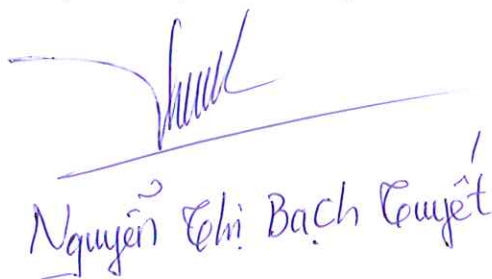 Nguyễn Thị Bạch Tuyết